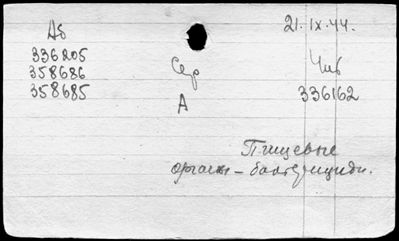 Аб 21.IX.44.
336205
358686 Сер Чив
358685 А 336162
Пищевые
органы – бактерициды.